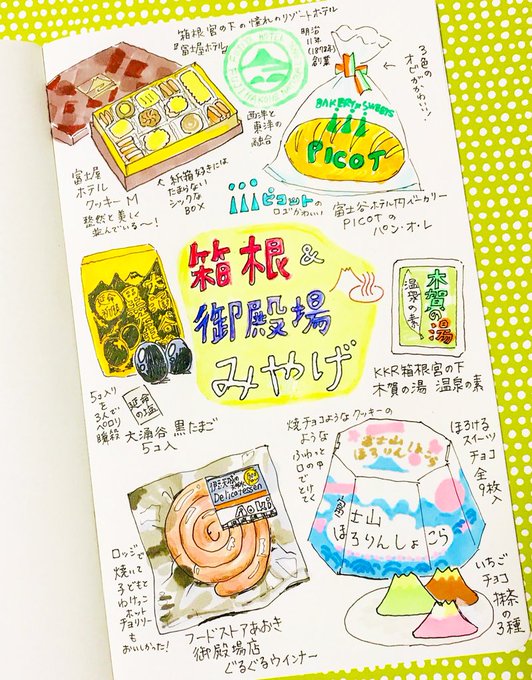 箱根宮の下の憧れのリゾートホテル
富士屋ホテル
明治
11年
(1878年)
創業
西洋と
東洋の
融合
3色の
オビがかわいい!
BAKERY & SWEETS
PICOT
富士屋
ホテル
クッキーM
整然と美しく
並んでいる〜!
紙箱好きには
たまらない
シックな
BOX
ピコットの
ロゴかわいい!
富士屋ホテル内ベーカリー
PICOTの
パン・オ・レ
箱根&
御殿場
みやげ
延命
大涌谷
黒たまご
5コ入り
を
3人で
ペロリ
瞬殺
延命の塩
大涌谷 黒たまご
5コ入
木賀の湯
温泉の素
KKR箱根宮の下
木賀の湯 温泉の素
Delicatessen
Aoki
ロッジで
焼いて
子どもと
わけっこ
ホット
チョリソー
も
おいしかった!
フードストアあおき
御殿場店
ぐるぐるウインナー
焼チョコようなクッキーの
ような
ふわっと
口の中
で
とけ
てく
富士山
ほろりんしょこら
富士山
ほろりんしょこら
ほろける
スイーツ
チョコ
全
9枚入
いちご
チョコ
抹茶
の
3種